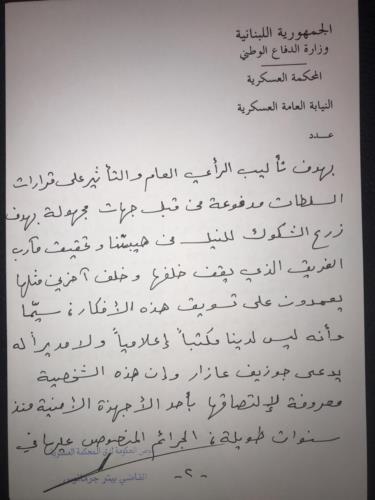 الجمهورية اللبنانية
وزارة الدفاع الوطني
المحكمة العسكرية
النيابة العامة العسكرية
عدد
بهدف تأليب الرأي العام والتأثير على قرارات
السلطات مدفوعة من قبل جهات مجهولة بهدف
زرع الشكوك للنيل من هيبتنا وتحقيق مآرب
الفريق الذي يقف خلفها وخلف آخرين مثلها
يعمدون على تسويق هذه الأفكار، سيّما
وأنه ليس لدينا مكتباً إعلامياً ولا مديراً له
يدعى جوزيف عازار وإن هذه الشخصية
معروفة لإلتصاقها بأحد الأجهزة الأمنية منذ
سنوات طويلة، الجرائم المنصوص عليها في
مفوض الحكومة لدى المحكمة العسكرية
القاضي بيتر جرمانوس
-٢-